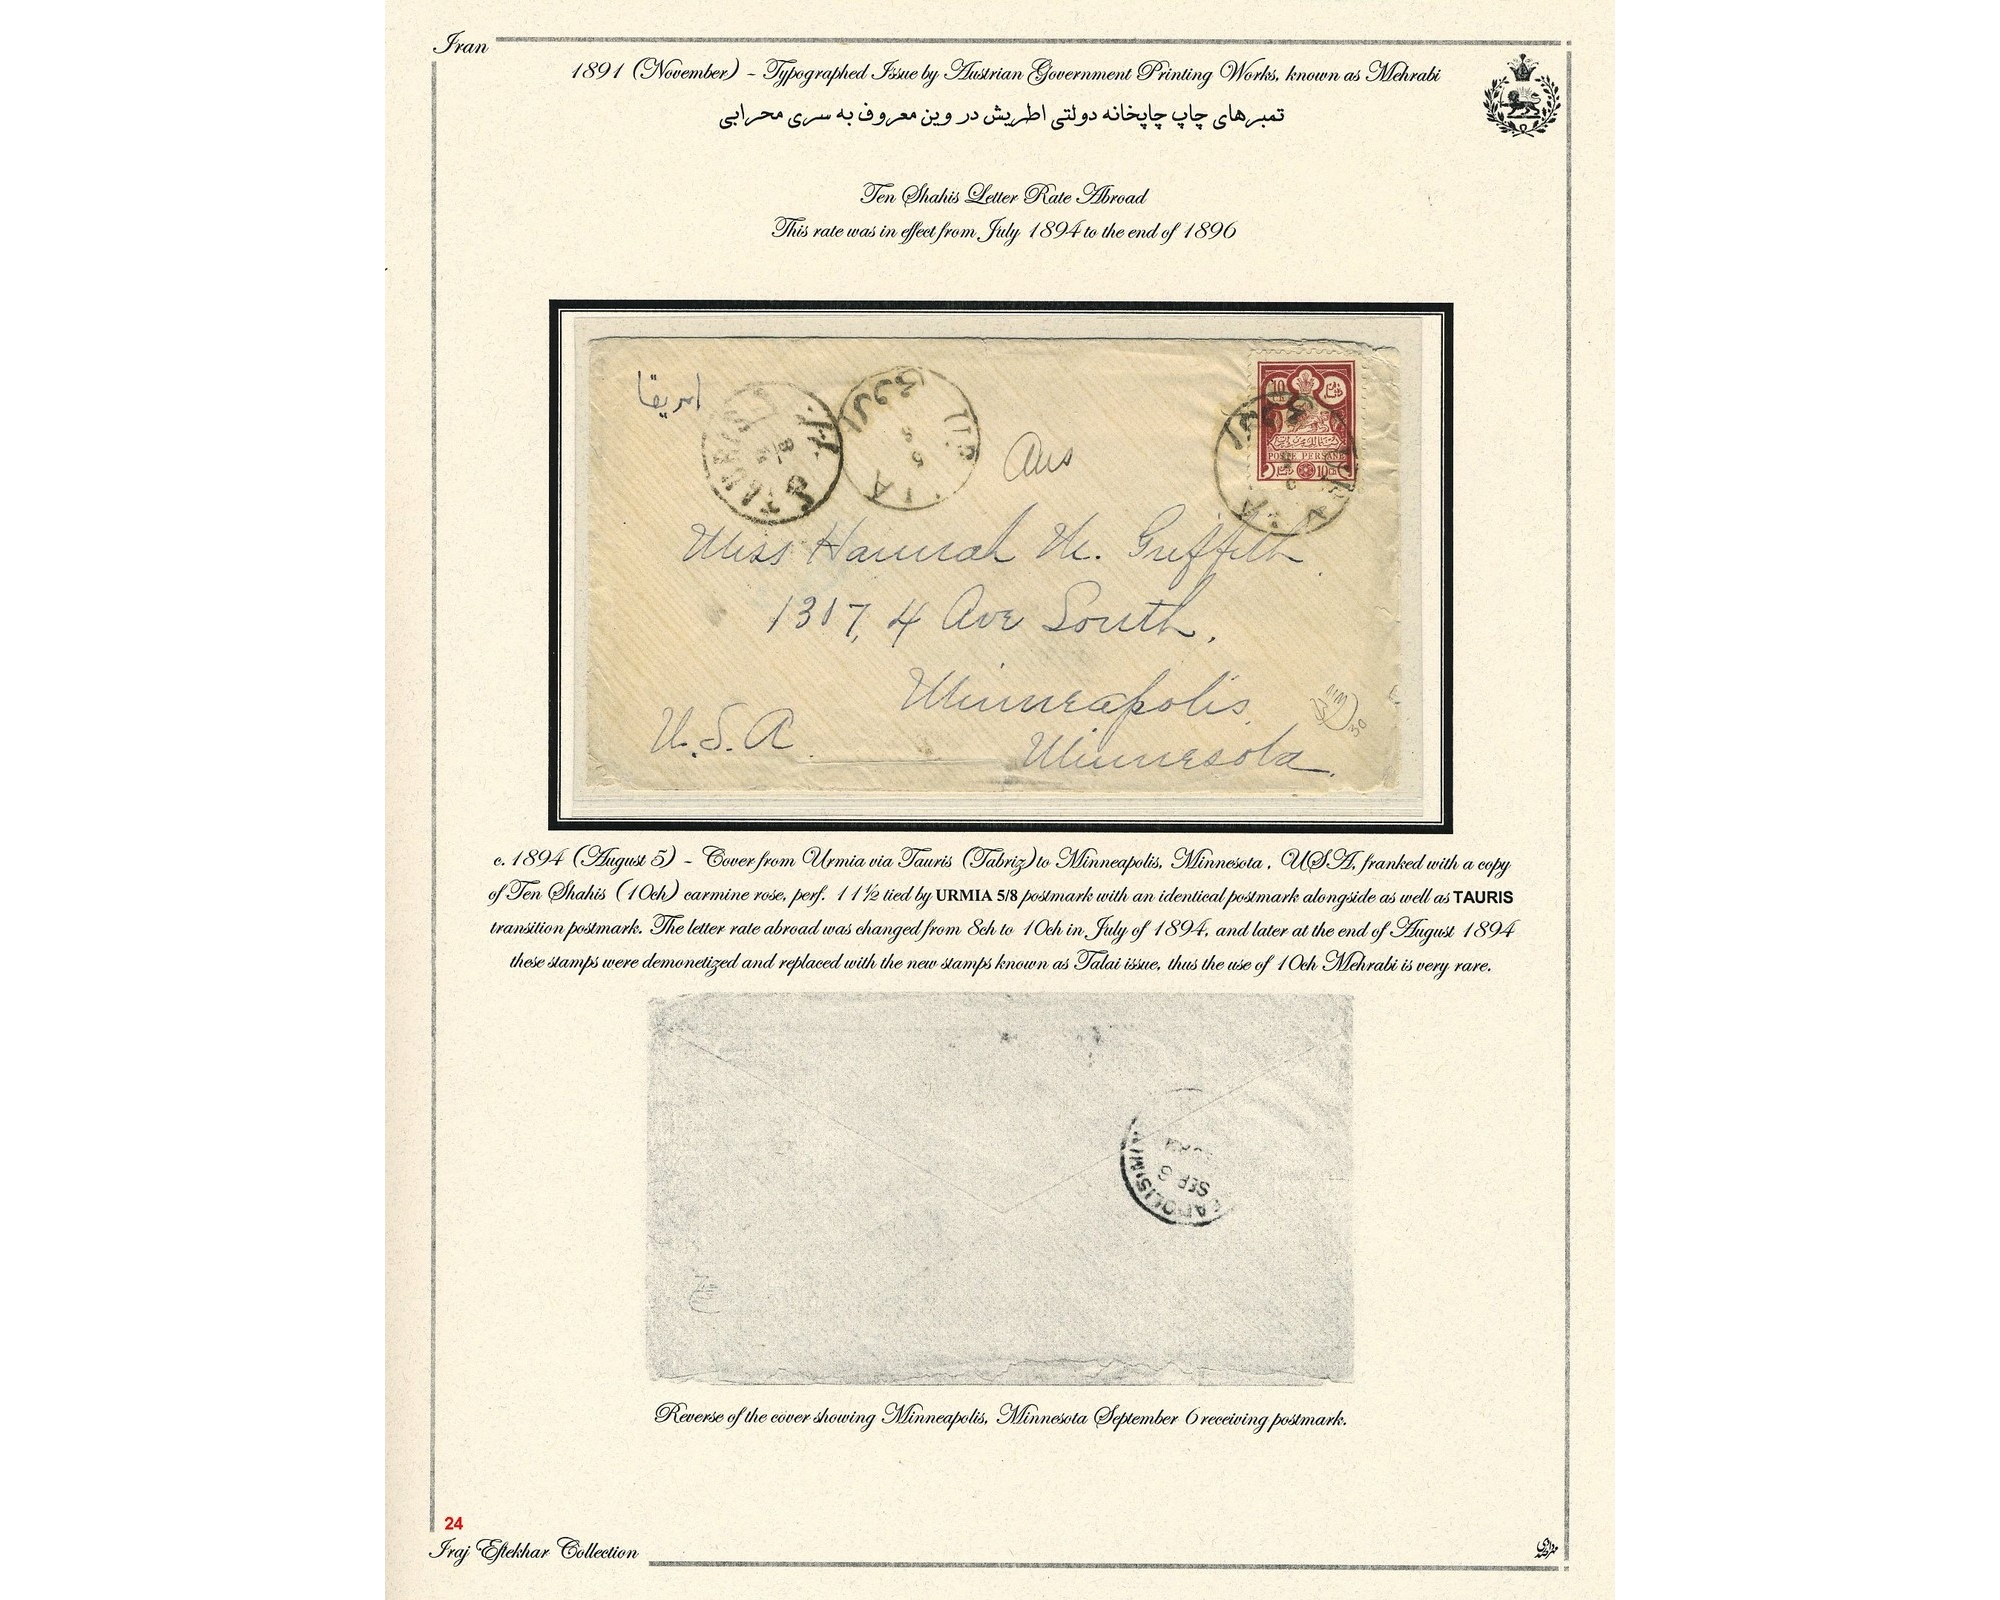 Iran
1891 (November) - Typographed Issue by Austrian Government Printing Works, known as Mehrabi
تمبرهای چاپ چاپخانه دولتی اطریش در وین معروف به سری محرابی
Ten Shahis Letter Rate Abroad
This rate was in effect from July 1894 to the end of 1896
امریقا
TAURIS
10
POSTE PERSANE
10ch
Miss Hannah M. Griffith.
1317, 4 Ave South.
Minneapolis
U.S.A.
Minnesota.
c. 1894 (August 5) - Cover from Urmia via Tauris (Tabriz) to Minneapolis, Minnesota, U.S.A, franked with a copy
of Ten Shahis (10ch) carmine rose, perf. 11½ tied by URMIA 5/8 postmark with an identical postmark alongside as well as TAURIS
transition postmark. The letter rate abroad was changed from 8ch to 10ch in July of 1894, and later at the end of August 1894
these stamps were demonetized and replaced with the new stamps known as Talai issue, thus the use of 10ch Mehrabi is very rare.
SEP 6
Reverse of the cover showing Minneapolis, Minnesota September 6 receiving postmark.
24
Iraj Eftekhar Collection